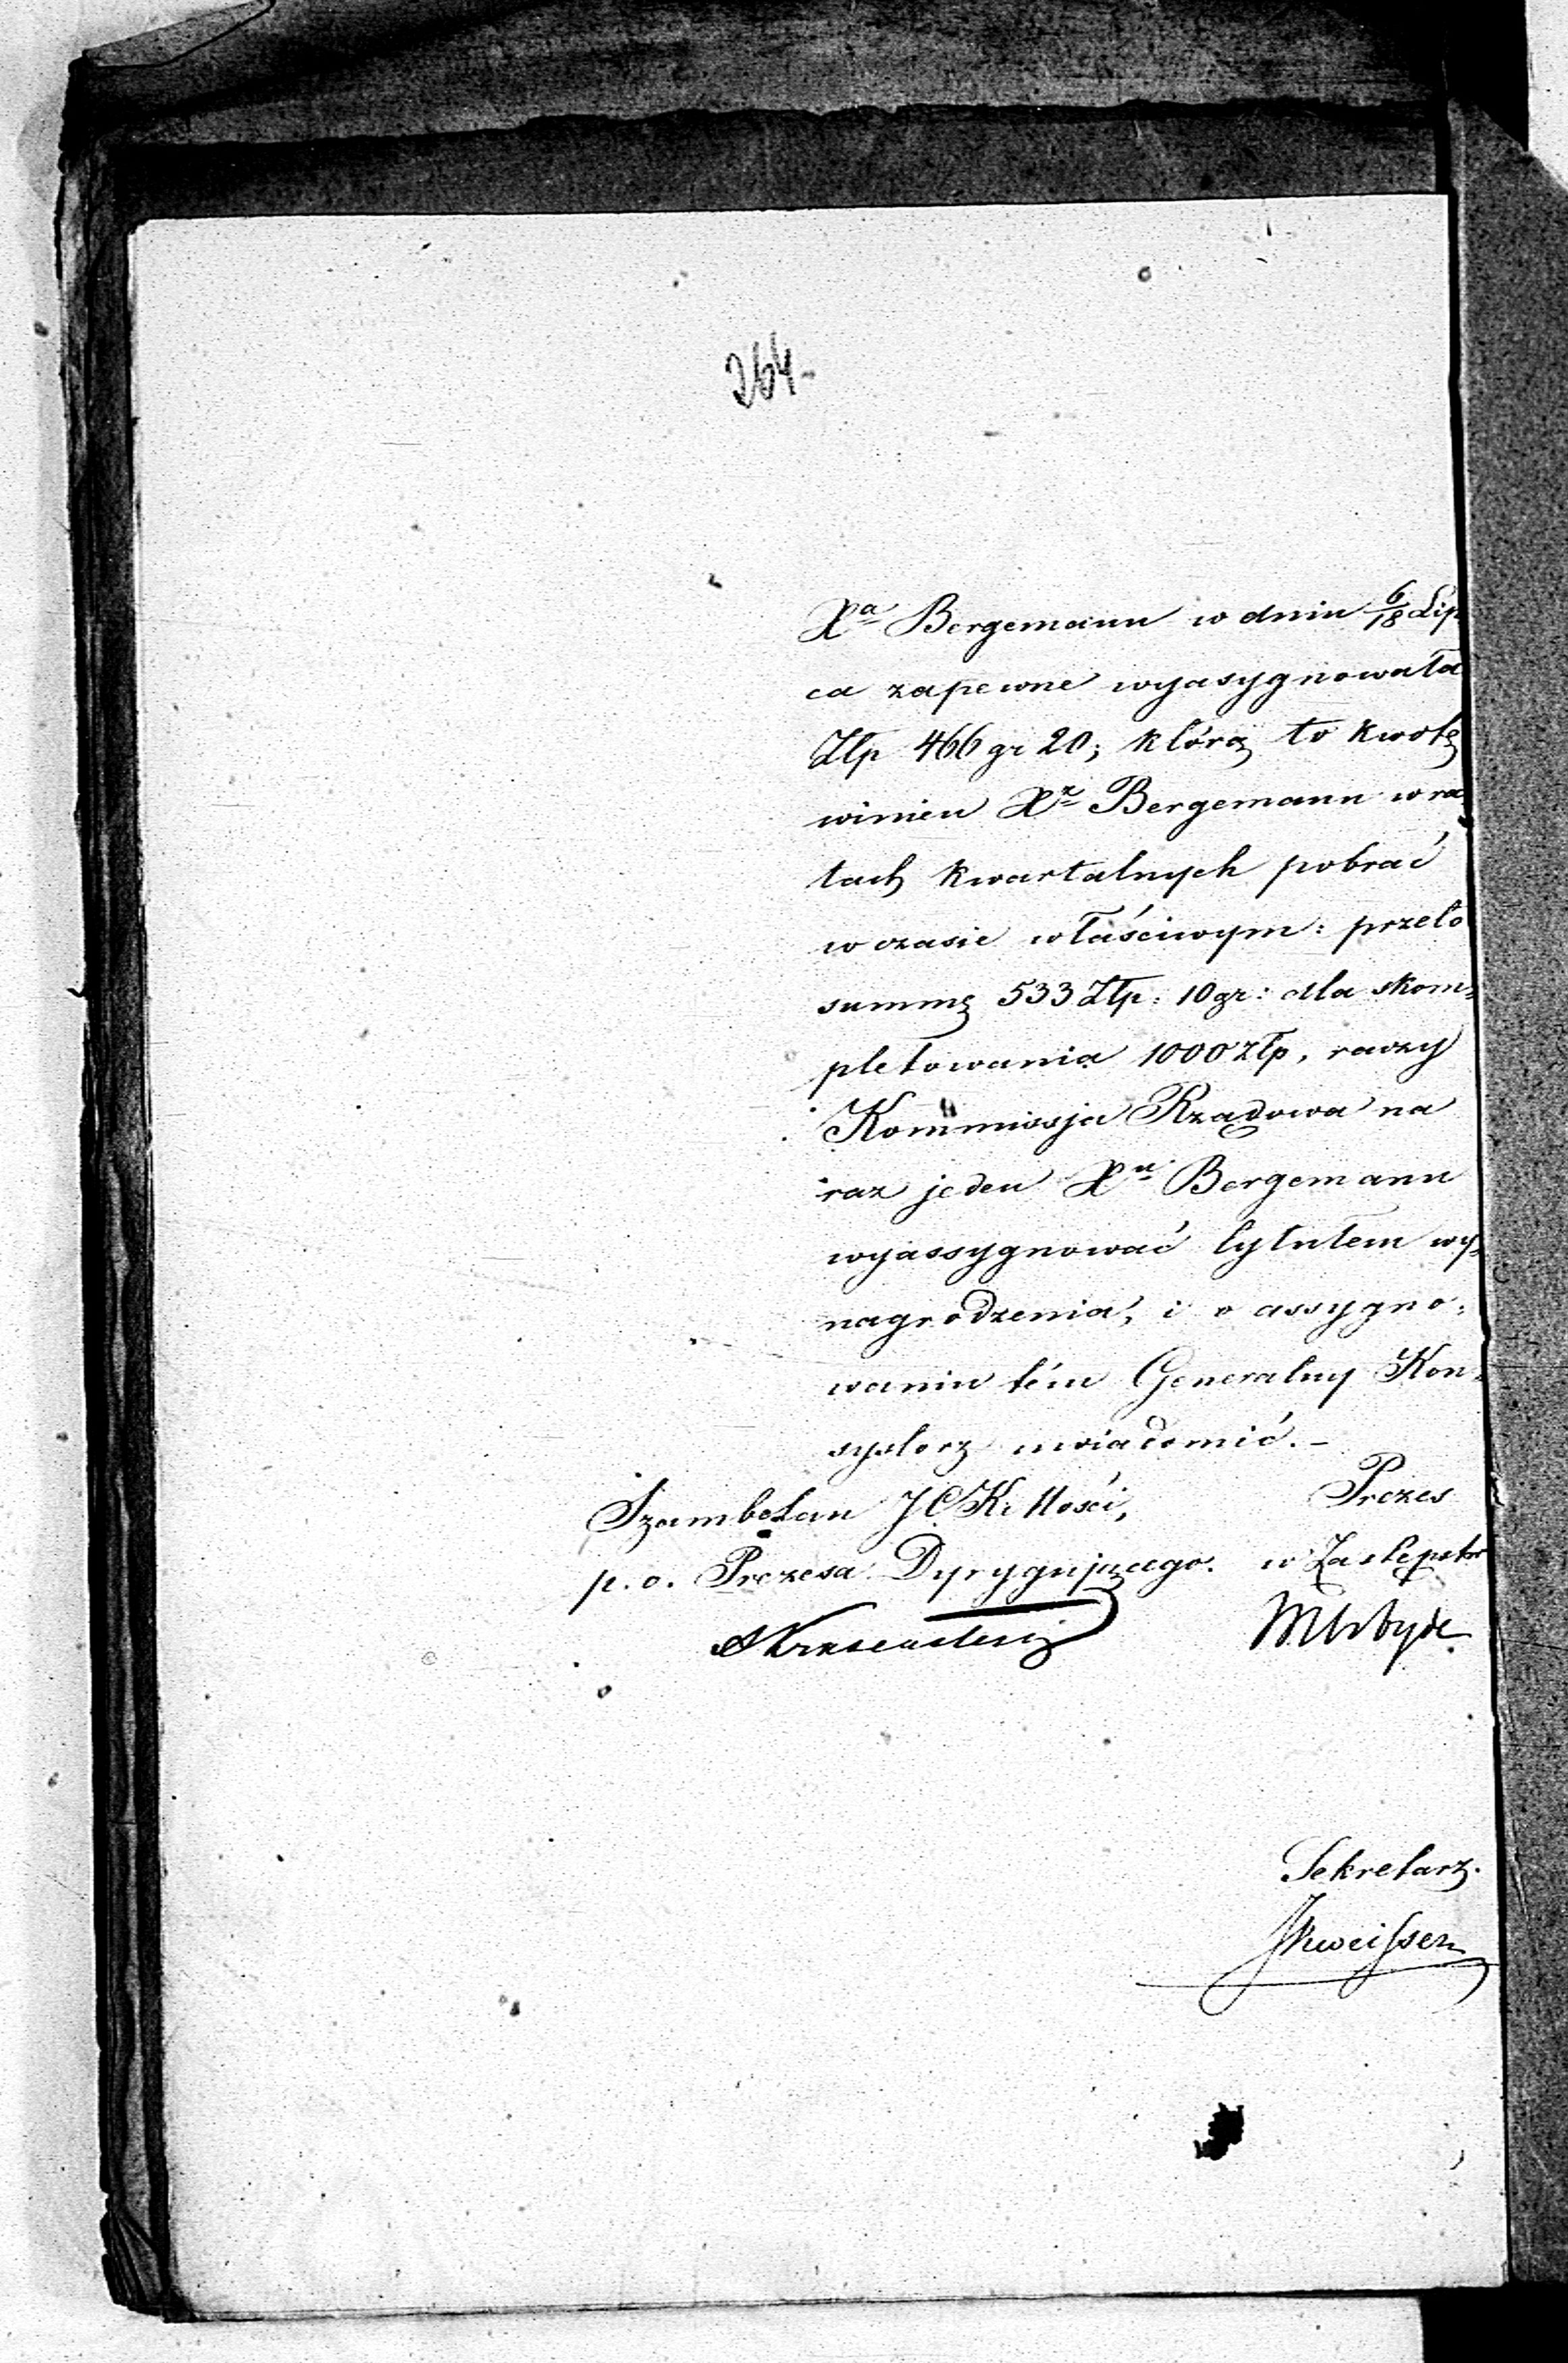 264.
Xa Bergemann w dniu 6/18 Lip
ca zapewne wyasygnowała
Złp 466 gr 20; którą to kwotę
winien Xz Bergemann w ra
tach kwartalnych pobrać
w czasie właściwym: przeto
summę 533 Złp: 10 gr: dla skom=
pletowania 1000 złp, raczy
Kommissja Rządowa na
raz jeden Xu Bergemann
wyassygnować tytułem wy=
nagrodzenia, i o assygno=
waniu tém Generalny Kon=
systorz uwiadomić. –
Szambelan J C K: Mości, Prezes
p. o. Prezesa Dyrygującego. w Zastępstw
Sekretarz.